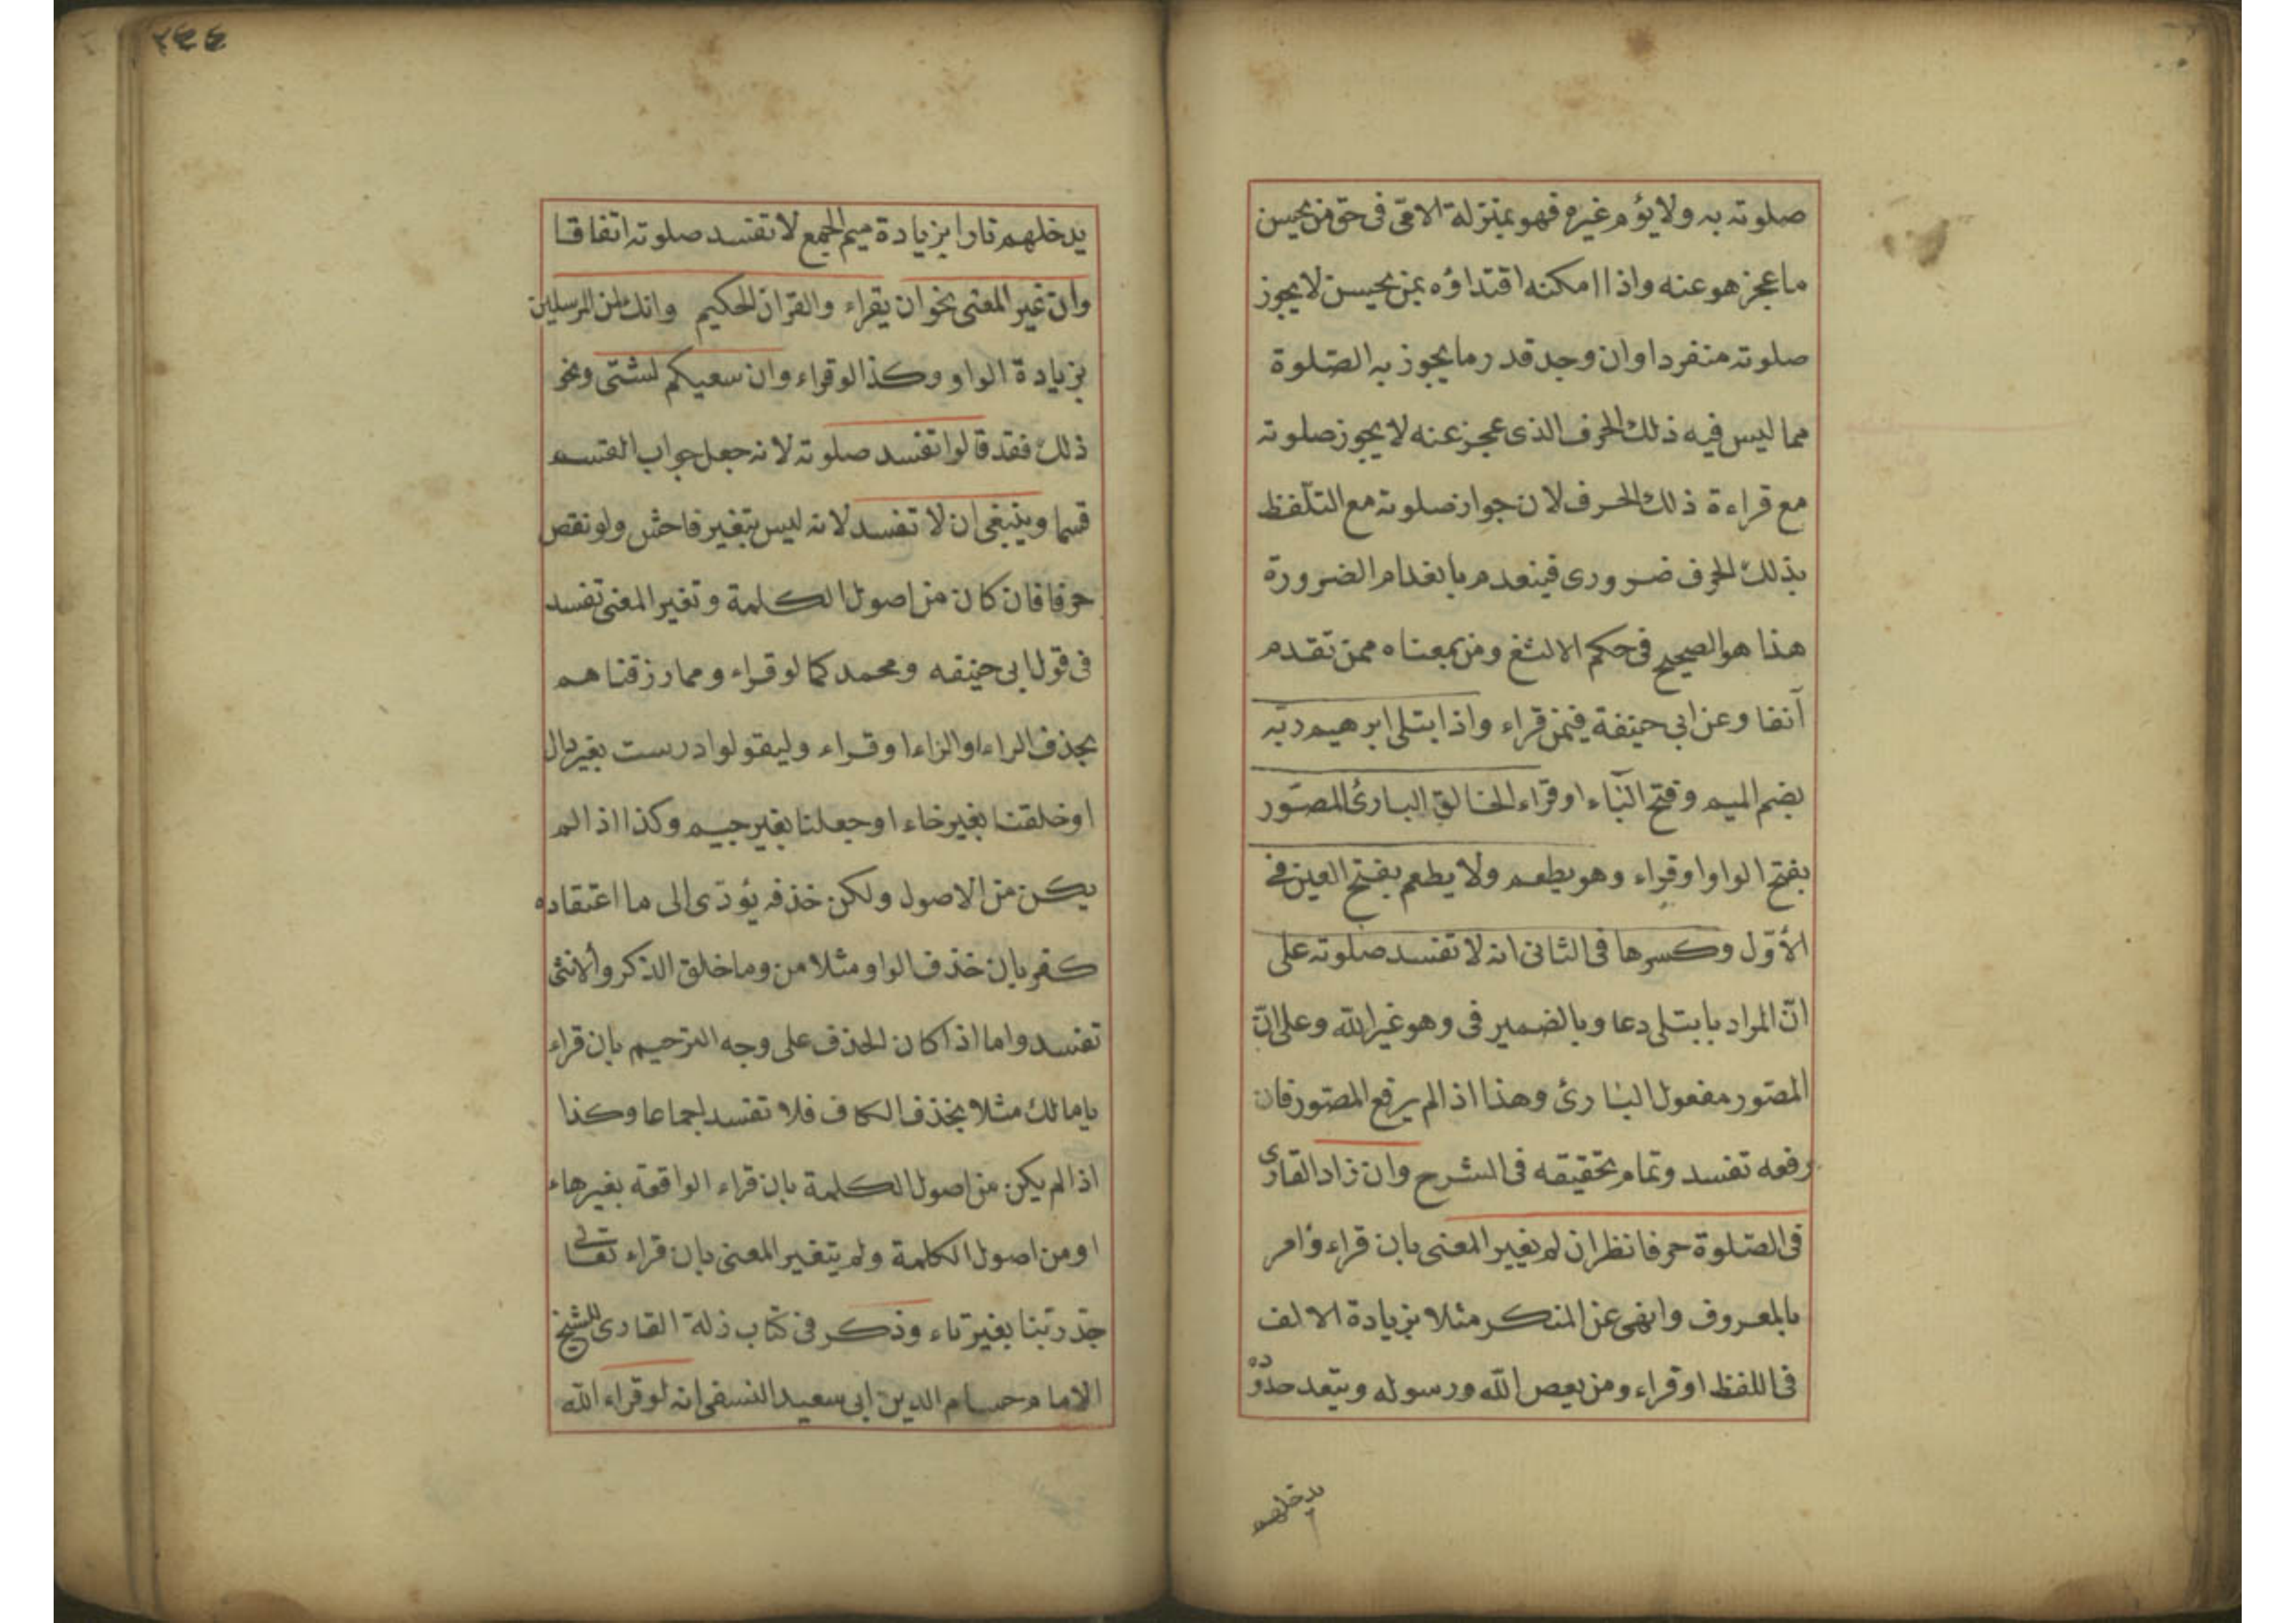 صلوته به ولا يؤم غيره فهو بمنزلة الامّى فى حق من يحسن
ما عجز هو عنه واذا امكنه اقتداؤه بمن يحسن لا يجوز
صلوته منفردا وان وجد قدر ما يجوز به الصّلوة
مما ليس فيه ذلك الحرف الذى عجز عنه لا يجوز صلوته
مع قراءة ذلك الحرف لان جواز صلوته مع التلفظ
بذلك الحرف ضرورى فينعدم بانعدام الضرورة
هذا هو الصحيح فى حكم الالثغ ومن بمعناه ممن تقدم
آنفا وعن ابى حنيفة فيمن قراء واذا ابتلى ابرهيم ربّه
بضم الميم وفتح البّاء او قراء الخالق البارئ المصوّر
بفتح الواو او قراء وهو يطعم ولا يطعم بفتح العين فى
الأوّل وكسرها فى الثانى انه لا تفسد صلوته على
انّ المراد بابتلى دعا وبالضمير فى وهو غير الله وعلى انّ
المصّور مفعول البارئ وهذا اذا لم يرفع المصّور فان
رفعه تفسد وتمام تحقيقه فى الشرح وان زاد القارى
فى الصّلوة حرفا نظر ان لم يغير المعنى بان قراء وأمر
بالمعروف وانهى عن المنكر مثلا بزيادة الالف
فى اللفظ او قراء ومن يعص الله ورسوله ويتعد حدوده
يدخلهم
٢٤٤
يدخلهم نارا بزيادة ميم الجمع لا تفسد صلوته اتفاقا
وان غير المعنى نحو ان يقراء والقران الحكيم وانك لمن المرسلين
بزيادة الواو وكذا لو قراء وان سعيكم لشتى ونحو
ذلك فقد قالوا تفسد صلوته لانه جعل جواب القسم
قسما وينبغى ان لا تفسد لانه ليس بتغير فاحش ولو نقص
حرفا فان كان من اصول الكلمة وتغير المعنى تفسد
فى قول ابى حنيفه ومحمد كما لو قراء ومما رزقناهم
بحذف الراء او الزاء او قراء وليقولوا درست بغير دال
او خلقنا بغير خاء او جعلنا بغير جيم وكذا اذا لم
يكن من الاصول ولكن خذفه يؤدّى الى ما اعتقاده
كفر بان خذف الواو مثلا من وما خلق الذكر وألانثى
تفسد واما اذا كان الحذف على وجه الترحيم بان قراء
يامالك مثلا بخذف الكاف فلا تفسد اجماعا وكذا
اذا لم يكن من اصول الكلمة بان قراء الواقعة بغير هاء
او من اصول الكلمة ولم يتغير المعنى بان قراء تعالى
جدّ ربّنا بغير تاء وذكر فى كتاب زلة القارى للشيخ
الامام حسام الدين ابى سعيد النسفى انه لو قراء الله